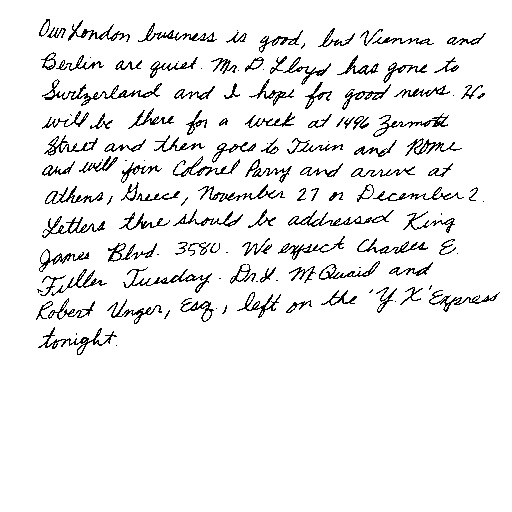 Our London business is good, but Vienna and
Berlin are quiet. Mr. D. Lloyd has gone to
Switzerland and I hope for good news. He
will be there for a week at 1496 Zermott
Street and then goes to Turin and Rome
and will join Colonel Parry and arrive at
Athens, Greece, November 27 or December 2.
Letters there should be addressed King
James Blvd. 3580. We expect Charles E.
Fuller Tuesday. Dr. L. McQuaid and
Robert Unger, Esq., left on the 'Y.X' Express
tonight.